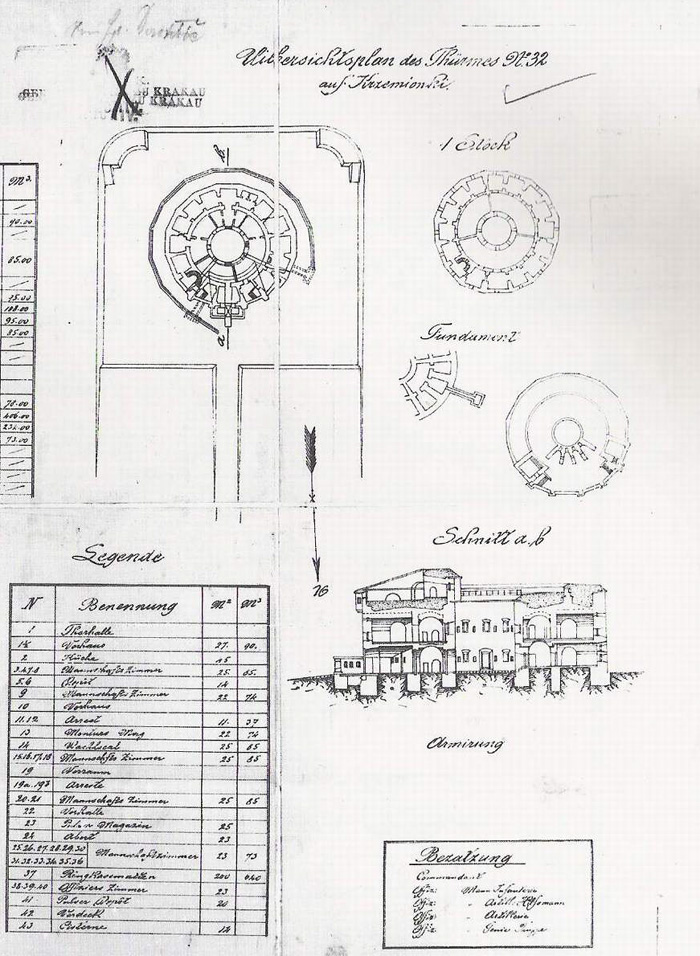 Uibersichtsplan des Thurmes No 32
auf Krzemionki.
KRAKAU
KRAKAU
b
1 Stock
M³
90.00
85.00
25.00
108.00
95.00
85.00
a
Fundament
78.00
406.00
234.00
73.00
Schnitt a, b
Legende
N Benennung M² M³
1 Thorhalle
1½ Vorhaus 27. 90.
2 Küche 15
3.4.7.8 Mannschafts Zimmer 25 85.
5.6 Depôt 14
9 Mannschafts Zimmer 22 74
10 Vorhaus
11.12 Arrest 11. 37
13 22 74
14 25 85
15.16.17.18 Mannschfts Zimmer 25 85
19 Vorraum
19a.19b Arreste
20.21 Mannschafts Zimmer 25 85
22 Vorhalle
23 Magazin 25
24 Abort 23
25.26.27.28.29.30
31.32.33.34.35.36 Mannschaftzimmer 23 73
37 Ringkasematten 200 640
38.39.40 Offiziers Zimmer 23
41 Pulver Depôt 20
42
43 Cisterne 12
16
Armirung
Bezatzung
Commandant
Offiz: Mann Infanterie
Offiz: "
Offiz: " Artillerie
Offiz: " Genie Truppe